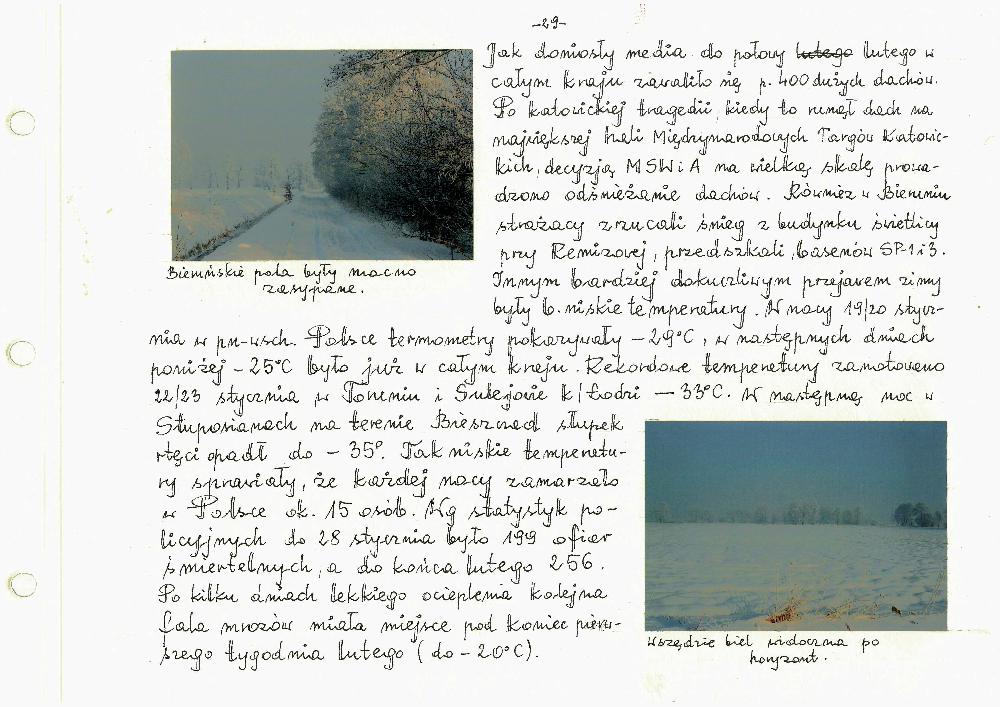 -29-
Jak doniosły media do połowy lutego lutego w
całym kraju zawaliło się p. 400 dużych dachów.
Po katowickiej tragedii, kiedy to runął dach na
największej hali Międzynarodowych Targów Katowic-
kich, decyzją MSWiA na wielką skalę prowa-
dzono odśnieżanie dachów. Również w Bieruniu
strażacy zrzucali śnieg z budynku świetlicy
przy Remizowej, przedszkoli, basenów SP-1 i 3.
Innym bardziej dokuczliwym przejawem zimy
były b. niskie temperatury. W nocy 19/20 stycz-
nia w pn-wsch. Polsce termometry pokazywały -29°C, w następnych dniach
poniżej -25°C było już w całym kraju. Rekordowe temperatury zanotowano
22/23 stycznia w Toruniu i Sulejowie k/Łodzi - 33°C. W następną noc w
Stuposianach na terenie Bieszczad słupek
rtęci opadł do - 35°. Tak niskie temperatu-
ry sprawiały, że każdej nocy zamarzało
w Polsce ok. 15 osób. Wg statystyk po-
licyjnych do 28 stycznia było 199 ofiar
śmiertelnych, a do końca lutego 256.
Po kilku dniach lekkiego ocieplenia kolejna
fala mrozów miała miejsce pod koniec pierw-
szego tygodnia lutego (do -20°C).
Bieruńskie pola były mocno
zasypane.
Wszędzie biel widoczna po
horyzont.